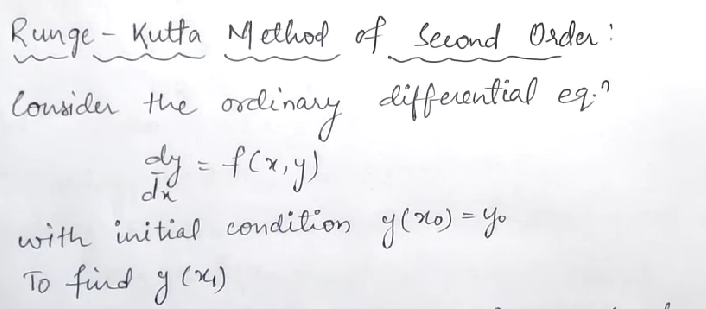 Runge - Kutta Method of Second Order :
Consider the ordinary differential eq.ⁿ
dy/dx = f(x,y)
with initial condition y(x₀) = y₀
To find y(x₁)